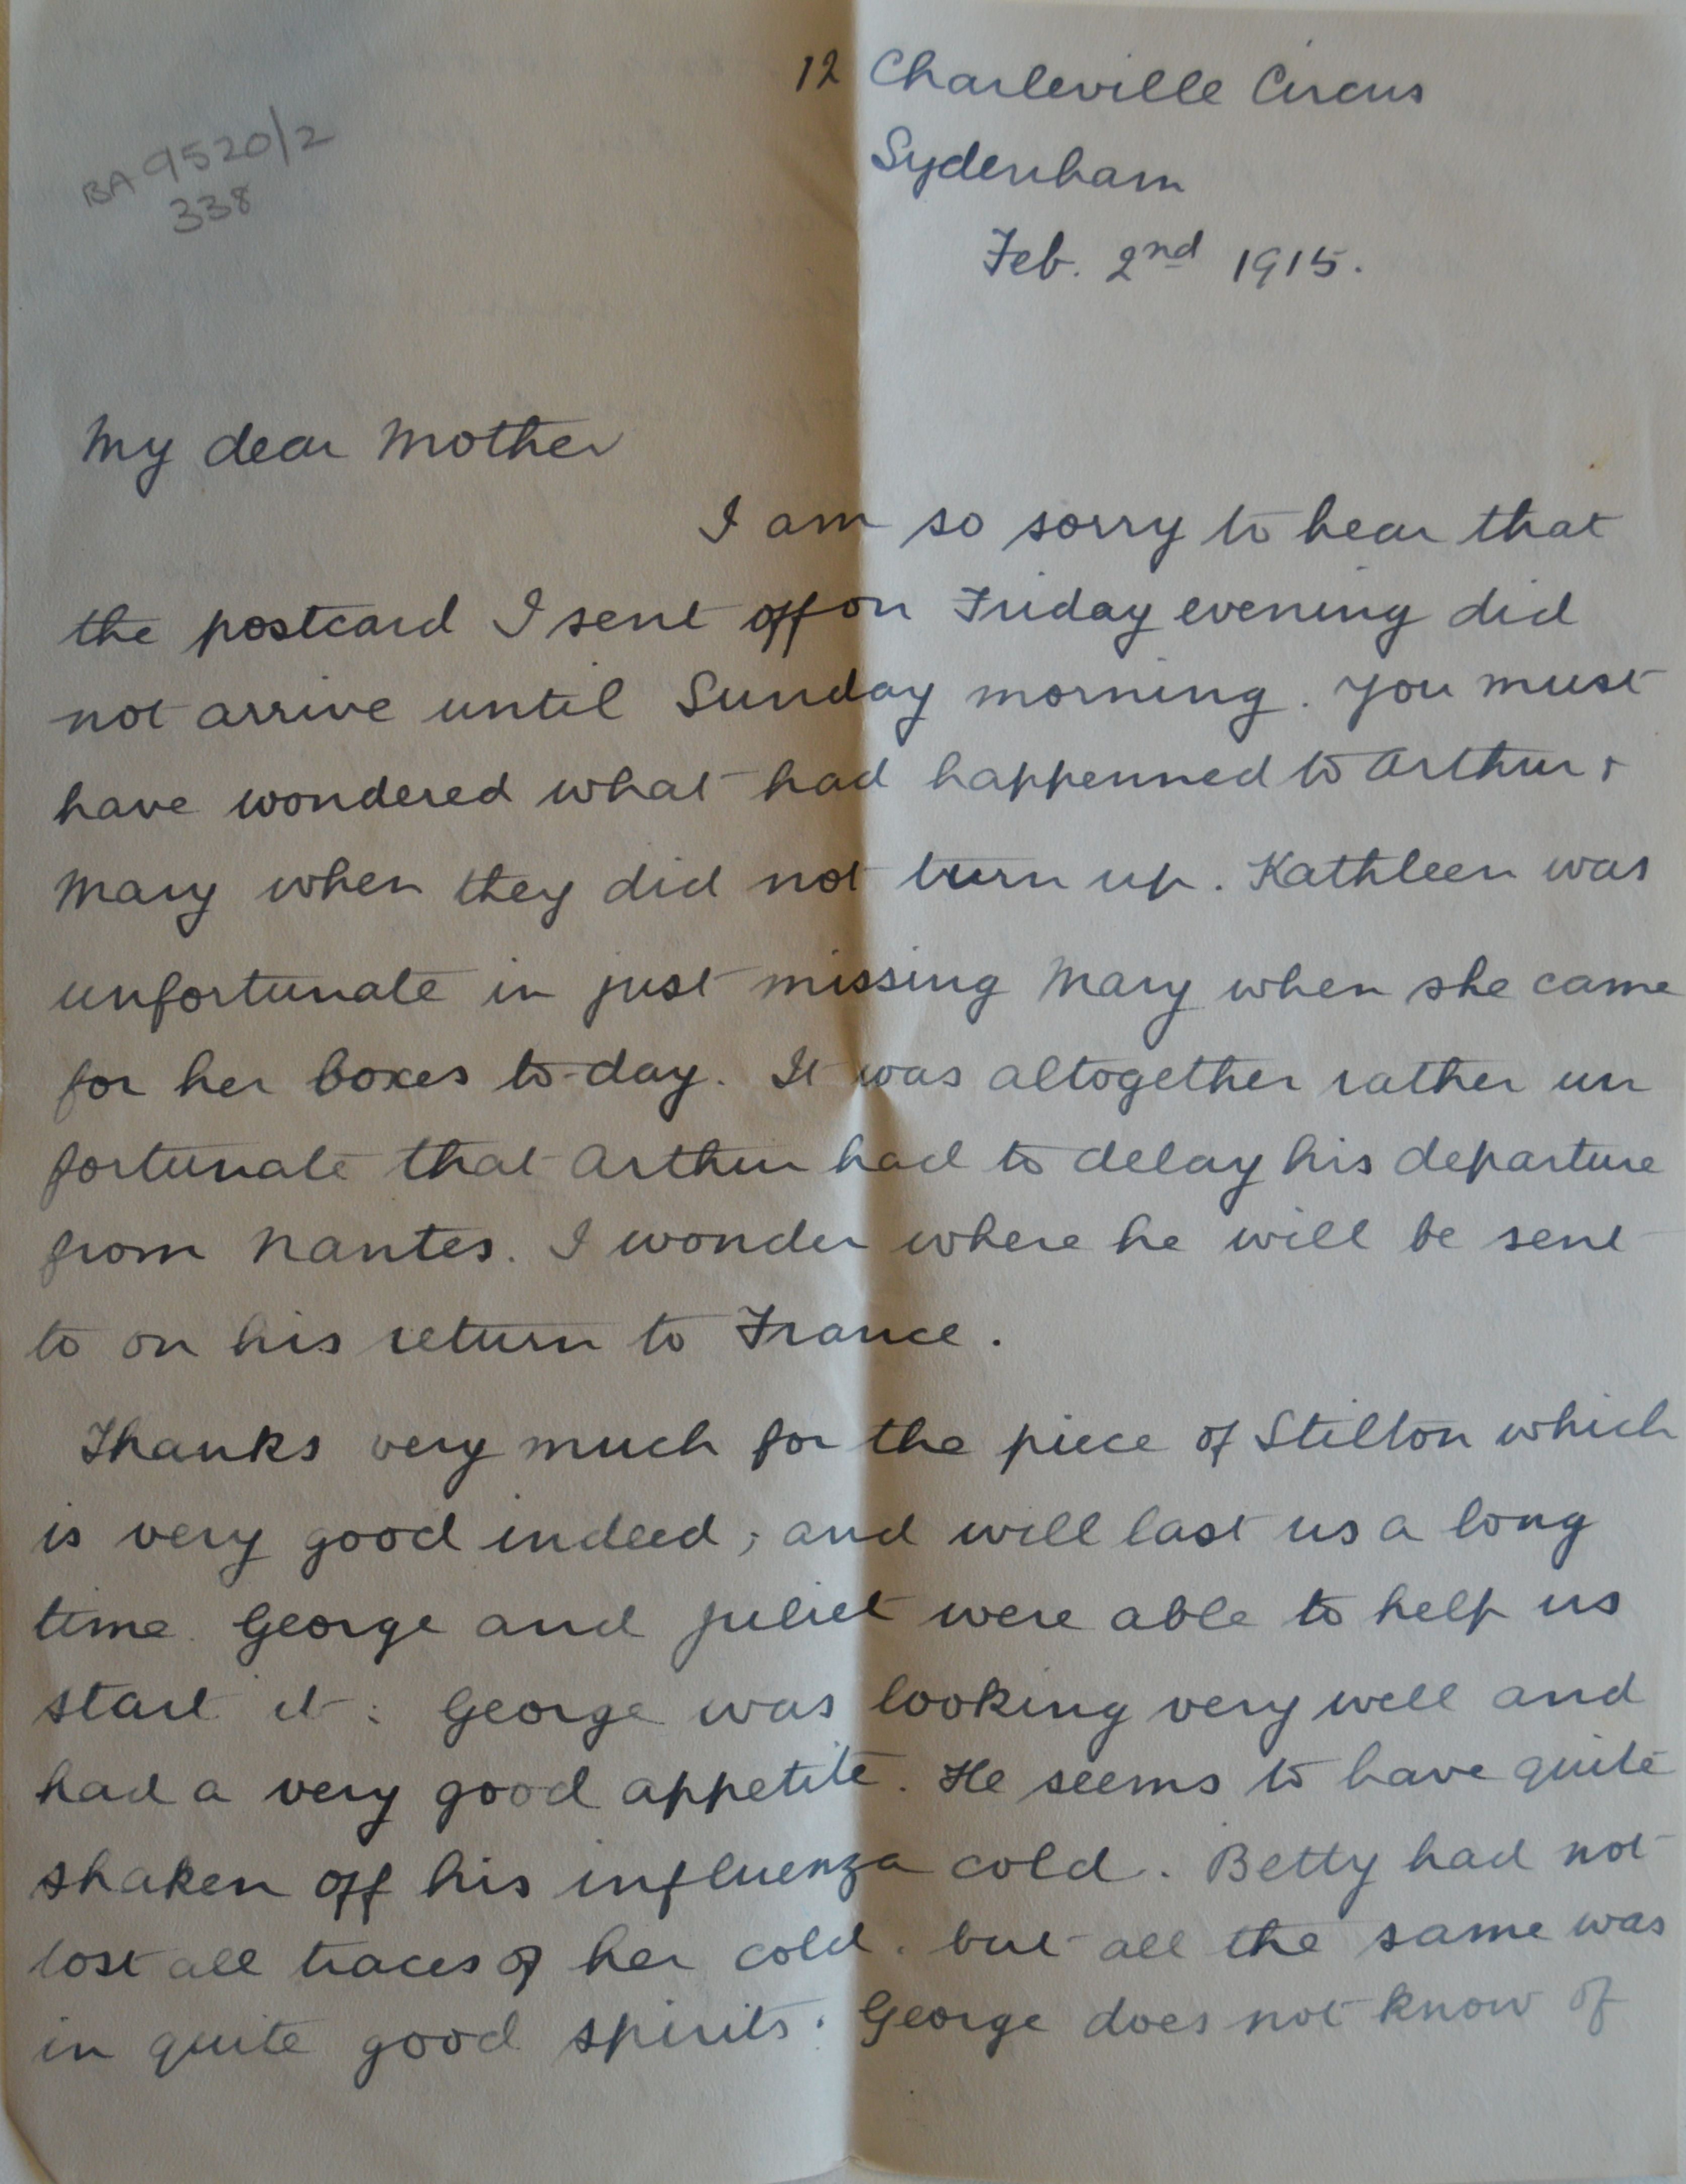 12 Charleville Circus
Sydenham
Feb. 2nd 1915.
BA 9520/2
338
My dear Mother
I am so sorry to hear that
the postcard I sent off on Friday evening did
not arrive until Sunday morning. You must
have wondered what had happenned to Arthur &
Mary when they did not turn up. Kathleen was
unfortunate in just missing Mary when she came
for her boxes to-day. It was altogether rather un
fortunate that Arthur had to delay his departure
from Nantes. I wonder where he will be sent
to on his return to France.
Thanks very much for the piece of Stilton which
is very good indeed, and will last us a long
time. George and Juliet were able to help us
start it. George was looking very well and
had a very good appetite. He seems to have quite
shaken off his influenza cold. Betty had not
lost all traces of her cold, but all the same was
in quite good spirits. George does not know of